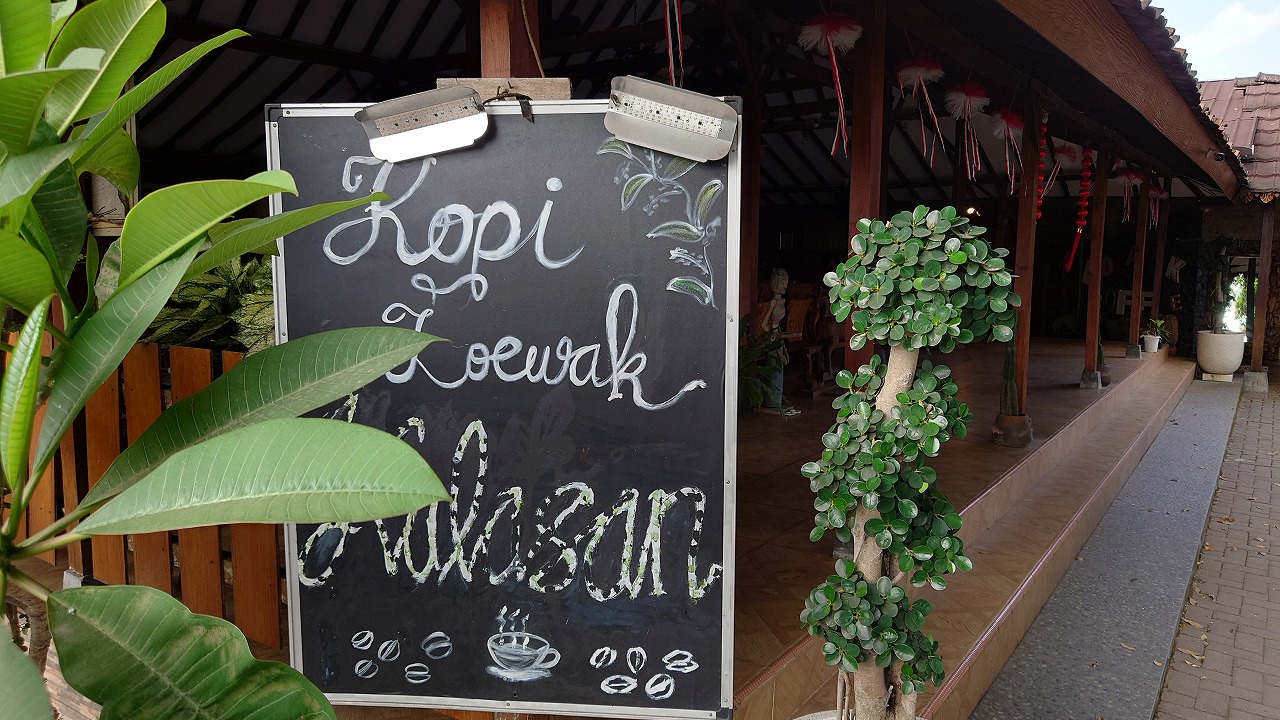 Kopi
Loewak
Kalasan